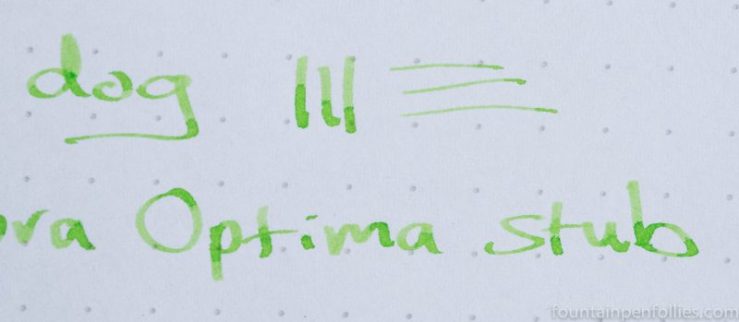 dog
ora Optima stub
fountainpenfollies.com